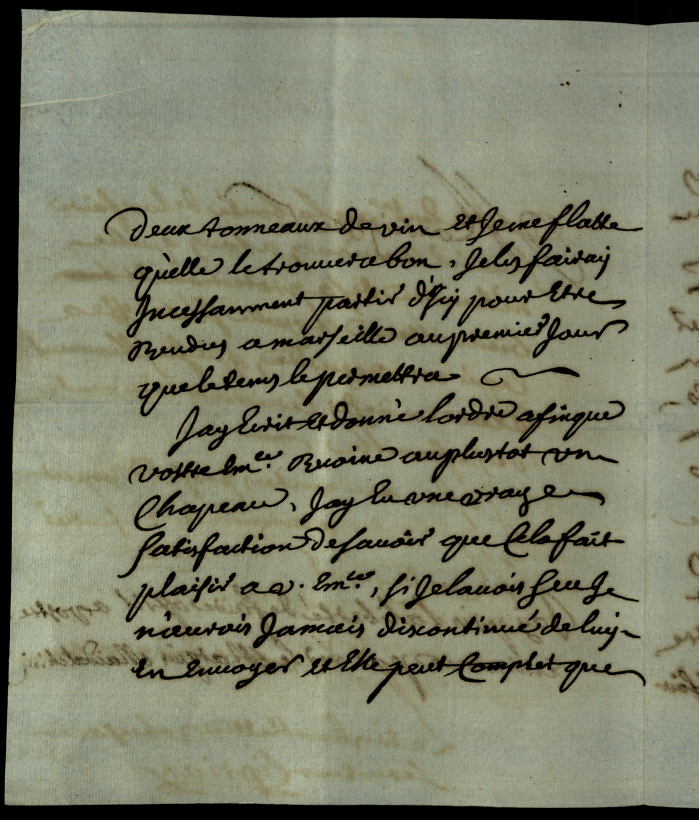 deux tonneaux de vin et Je me flatte
qu'elle le trouvera bon, Je les fairay
Incessamment partir d'Icy pour Etre
Rendus a marseille au premier Jour
que le tems le permettra
Jay Ecrit et donné l'ordre afin que
vostre Em.ce Recoive au plustot un
Chapeau, Jay Eu une vraye
satisfaction de savoir que Cela fait
plaisir a v. Em.ce, si Je lavois sceu Je
n'aurois Jamais discontinué de luy
En Envoyer et Elle peut Compter que